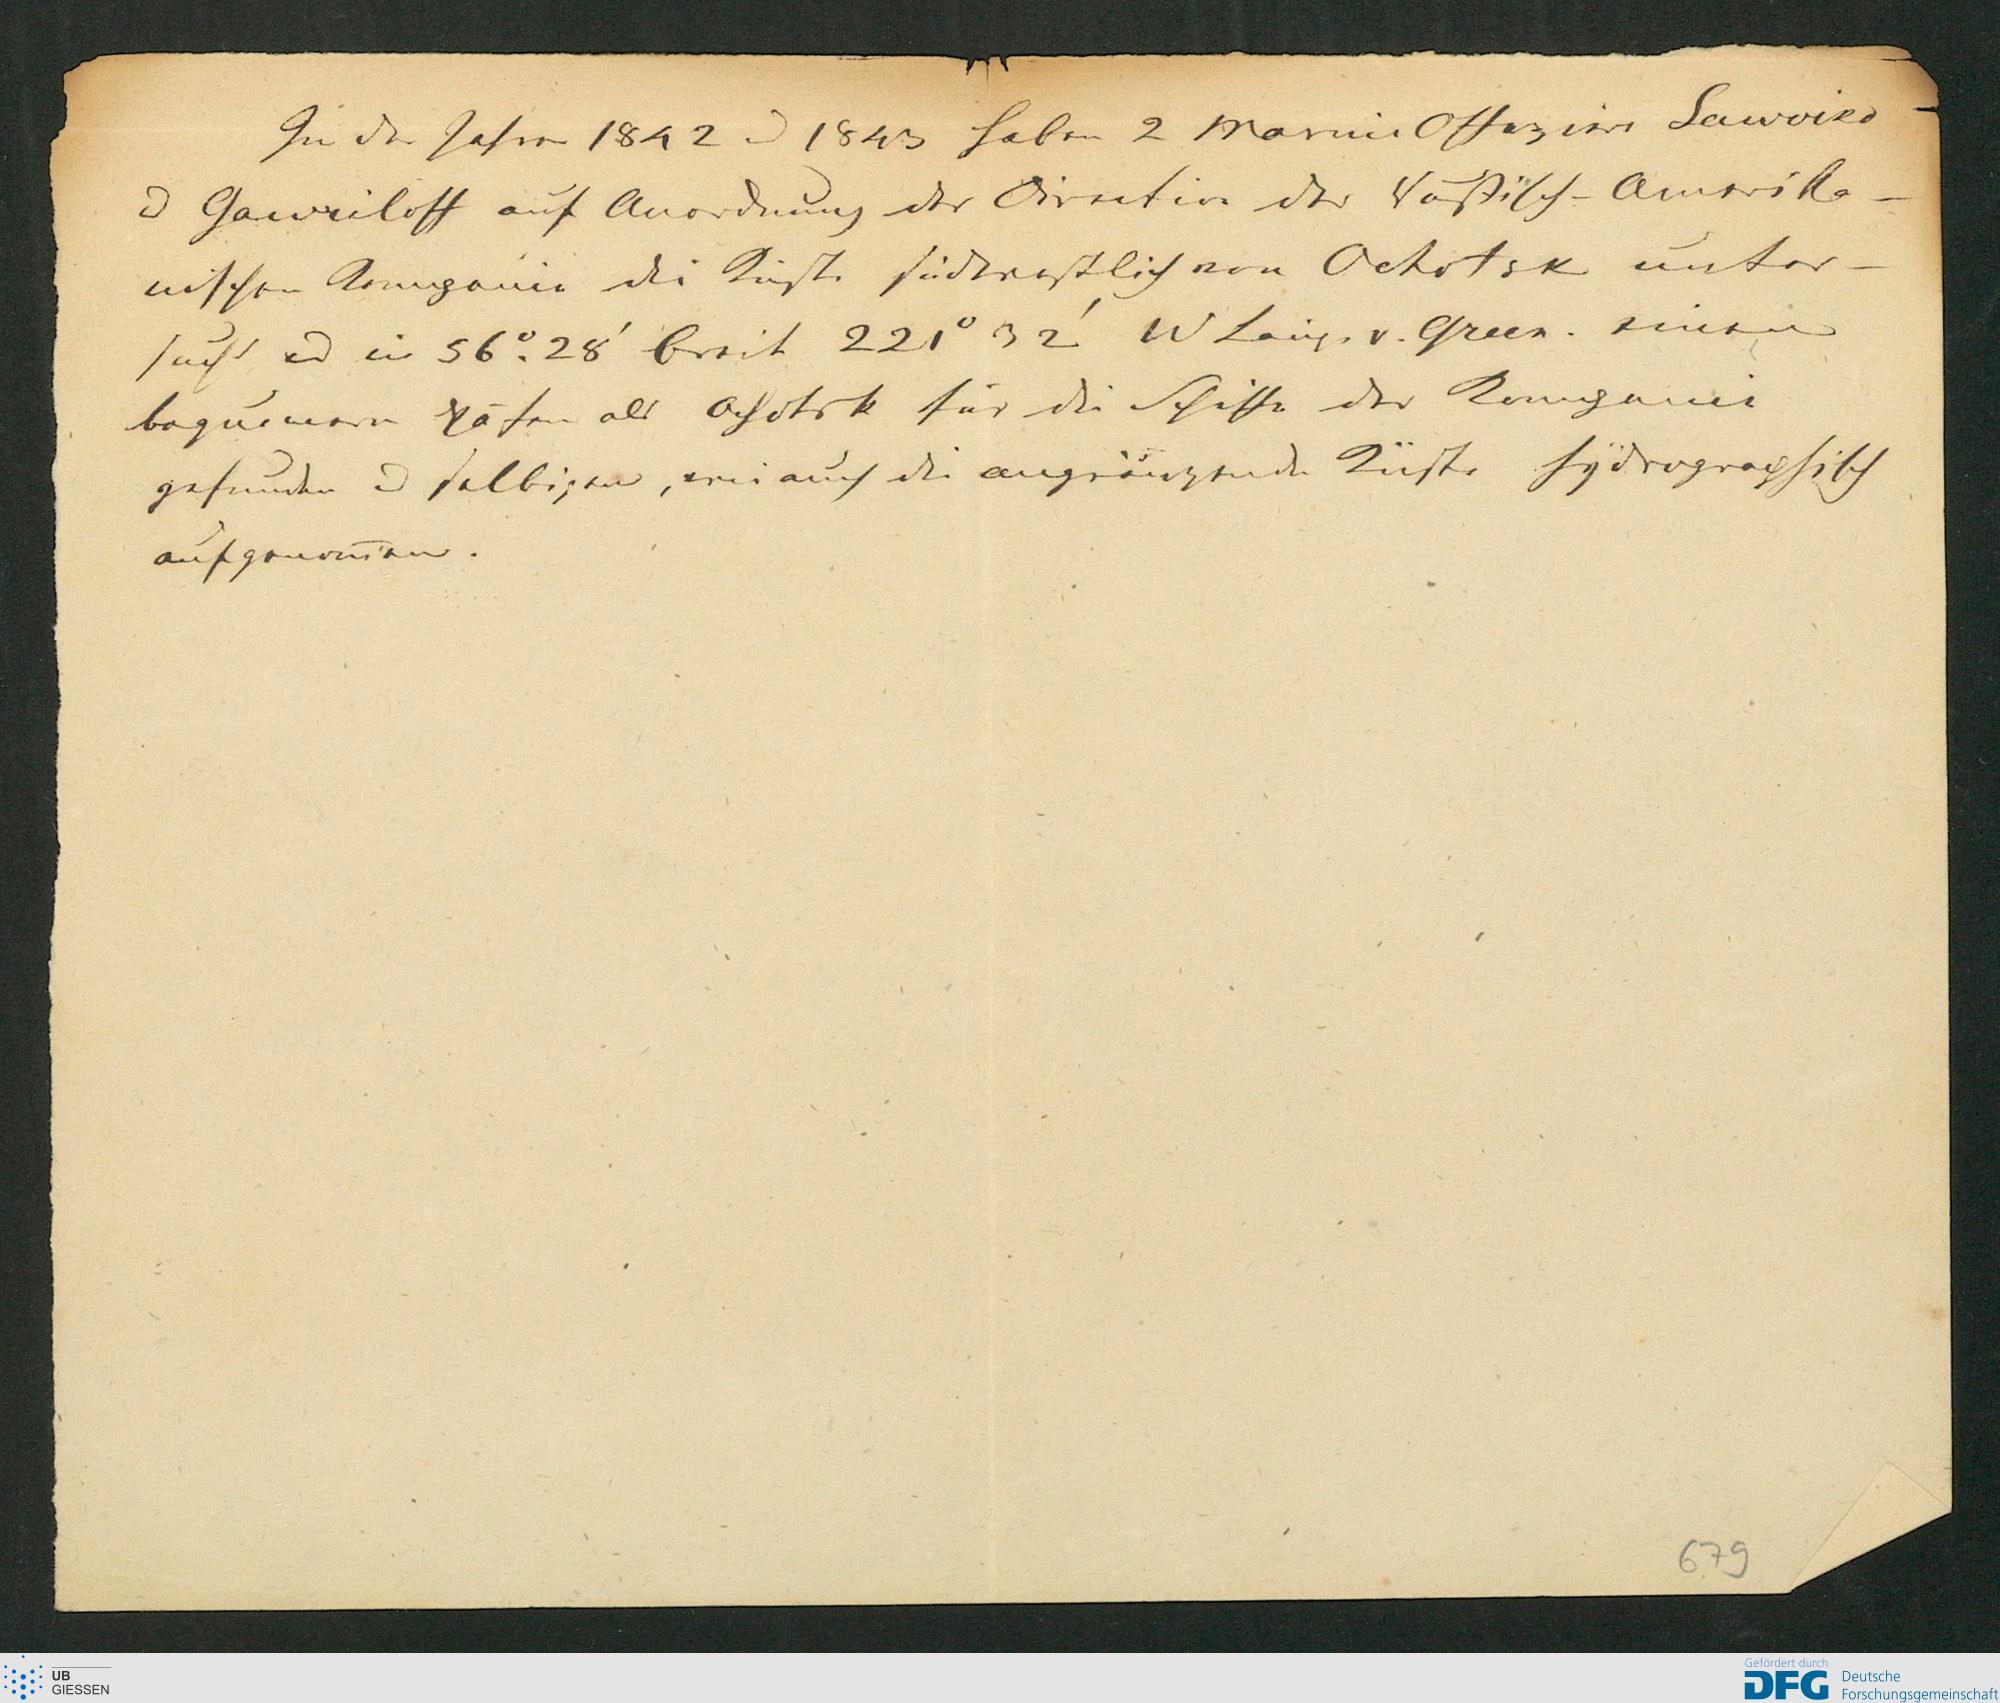 In den Jahren 1842 u 1843 haben 2 Marine Offiziere Sawoiko
u Gawriloff auf Anordnung der Direction der Rußisch-Amerika-
nischen Kompanie die Küste südwestlich von Ochotsk unter-
sucht und in 56°. 28' breit 221° 32' W Läng. v. Green. einen
bequemern Hafen als Ochotsk für die Schiffe der Kompanie
gefunden u selbigen, wie auch die angränzende Küste hÿdrographisch
aufgenom̅en.
679
UB
GIESSEN
Gefördert durch
DFG Deutsche
Forschungsgemeinschaft